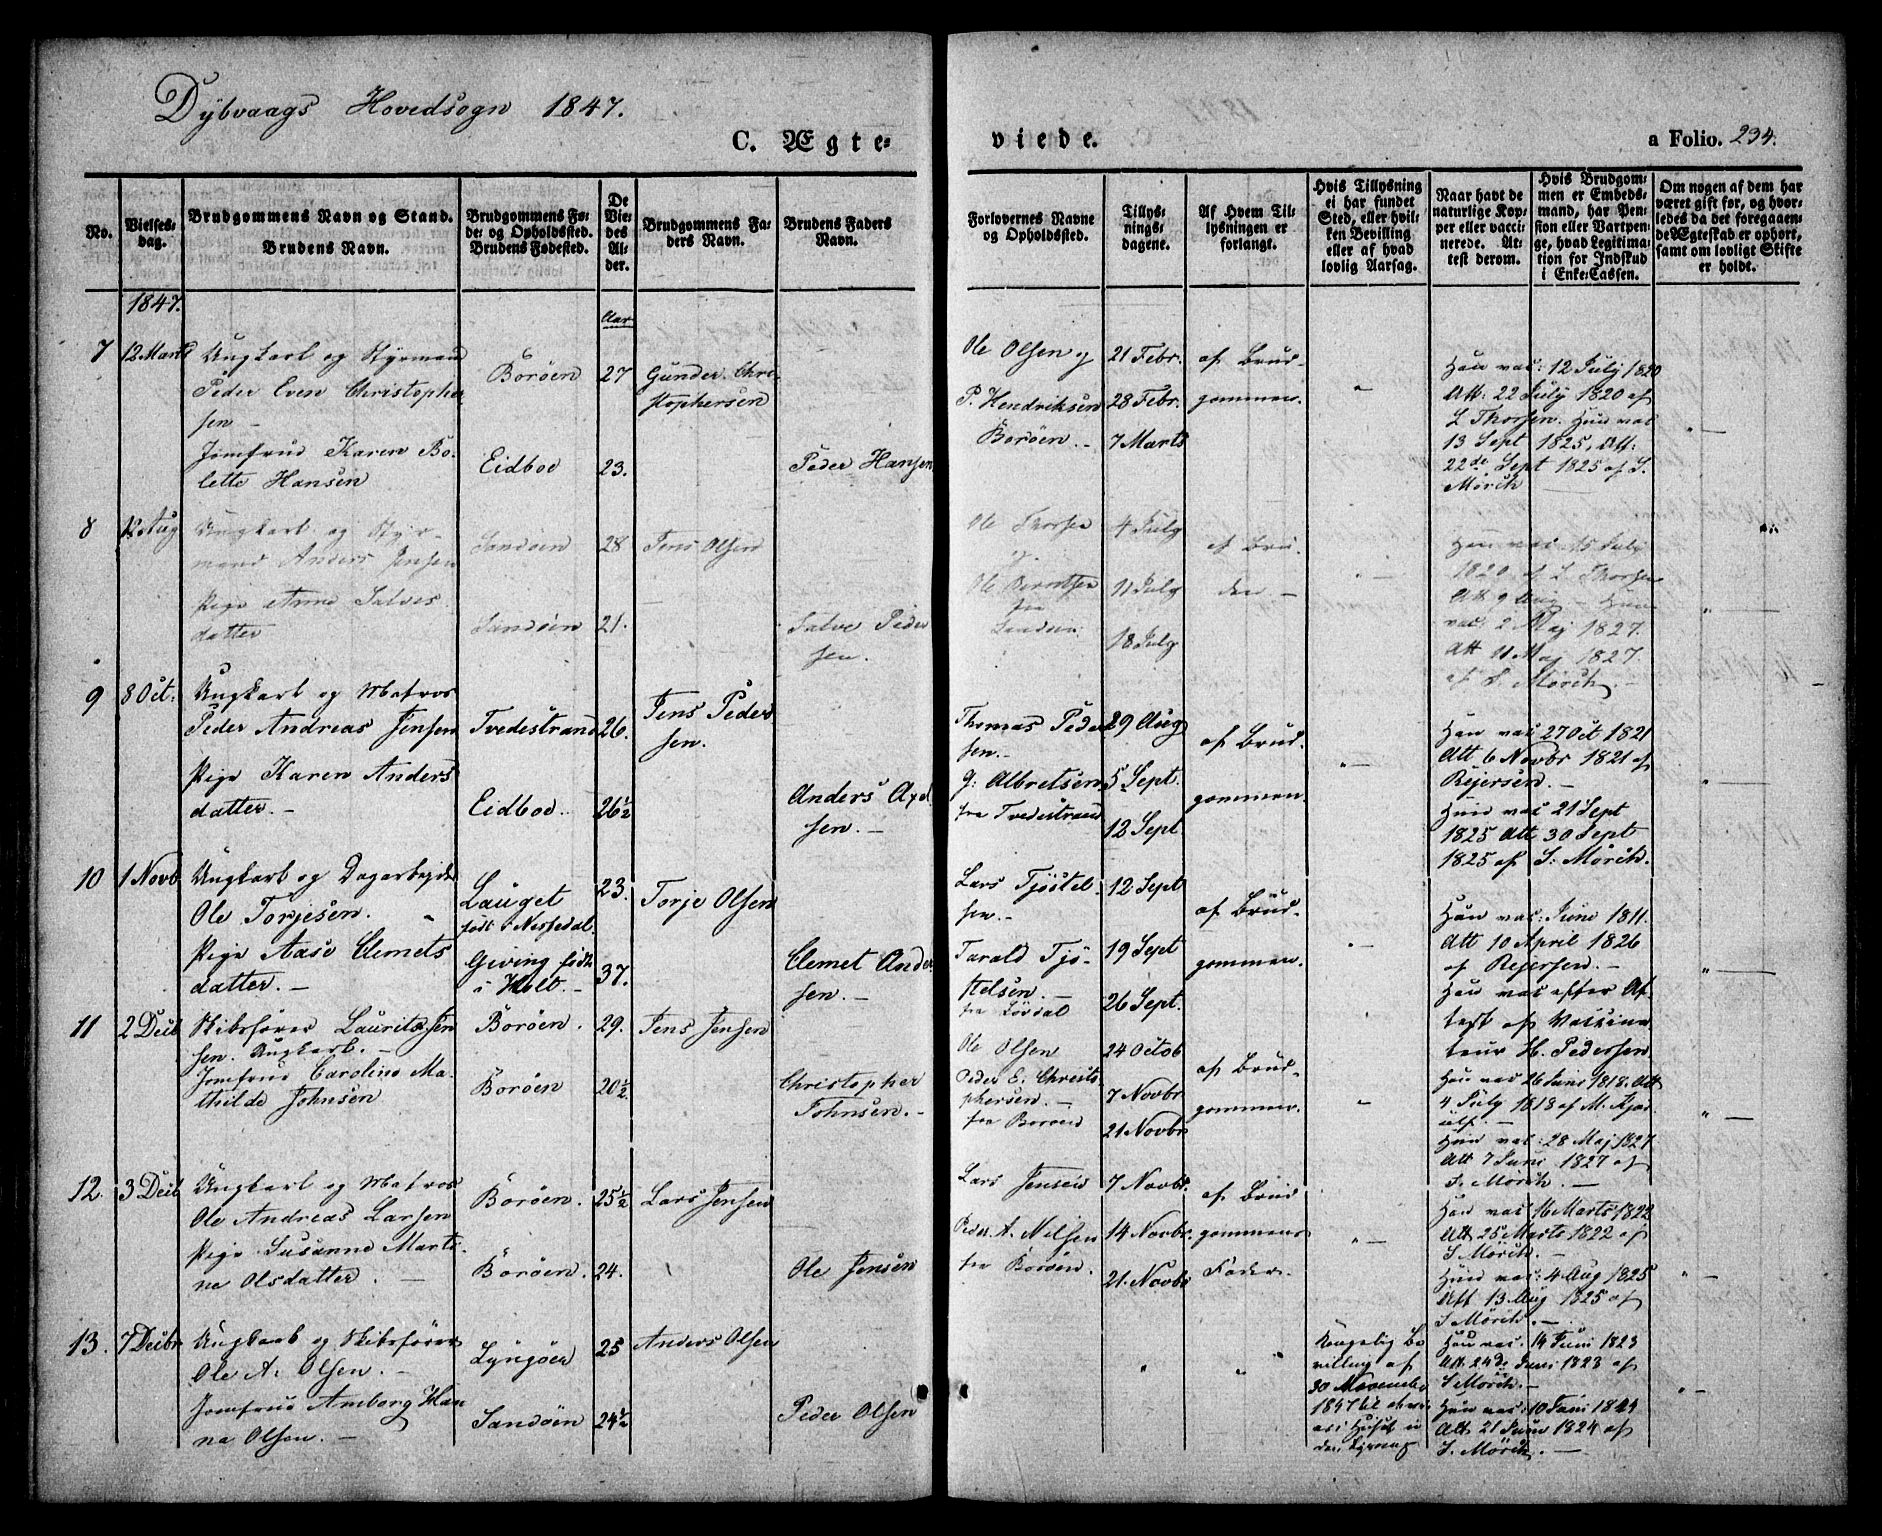 Dybvaags Hovedsogn 1847.
C. Ægte-
viede.
a Folio. 234.
No.
Vielses-
dag.
Brudgommens Navn og Stand.
Brudens Navn.
Brudgommens Fø-
de- og Opholdssted.
Brudens Fødested.
De
Vie-
des
Al-
der.
Brudgommens Fa-
ders Navn.
Brudens Faders
Navn.
Forlovernes Navne
og Opholdssted.
Tillys-
nings-
dagene.
Af Hvem Til-
lysningen er
forlangt.
Hvis Tillysning
ei har fundet
Sted, eller hvil-
ken Bevilling
eller af hvad
lovlig Aarsag.
Naar havt de
naturlige Kop-
per eller vacci-
nerede. At-
test derom.
Hvis Brudgom-
men er Embeds-
mand, har Pen-
sion eller Vartpen-
ge, hvad Legitima-
tion for Indskud
i Enke-Cassen.
Om nogen af dem har
været gift før, og hvor-
ledes da det foregaaen-
de Ægteskab er ophørt,
samt om lovligt Skifte
er holdt.
1847.
Aar
7
12 Marts
Ungkarl og Styrmand
Peder Even Christopher
sen -
Jomfrue Karen Bo-
lette Hansen
Borøen
Eidboe
27
23.
Gunder Chri-
stophersen
Peder Hansen
Ole Olsen og
P. Hendriksen
Borøen. -
21 Febr.
28 Febr.
7 Marts
af Brud-
gommen.
Han vac: 12 July 1820
Att: 22 July 1820 af
L Thorsen. Hun vac
13 Sept 1825, Att:
22de Sept 1825 af S.
Mörch
8
12 Aug
Ungkarl og Styr-
mand Anders Jensen
Pige Anne Salves
datter
Sandøen
Sandøen
28
21.
Jens Olsen
Salve Peder
sen.
Ole Thorsen
og
Ole Berntsen
fra
Sandøen
4 July
11 July
18 July
af Bru-
den -
Han vac 15 July
1820 af L Thorsen
Att 9 Aug - Hun
vac: 2 Maj 1827.
Att 11 Maj 1827.
af S. Mörch. -
9
8 Oct:
Ungkarl og Matros
Peder Andreas Jensen
Pige Karen Anders
datter. -
Tvedestrand
Eidboe.
26.
26½
Jens Peder
sen.
Anders Axel
sen. -
Thomas Peder
sen. -
G: Albretsen
fra Tvedestrand
29 Aug
5 Sept.
12 Sept.
af Brud-
gommen.
Han vac 27 Oct 1821
Att 6 Novbr 1821 af
Rejersen.
Hun vac 21 Sept
1825 Att 30 Sept
1825 af S. Mörch.
10
1 Novb
Ungkarl og Dagarbejder
Ole Torjesen.
Pige Aase Clemets
datter. -
Lauget
født i Nissedal.
Giving født
i Holt. -
23.
37.
Torje Olsen
Clemet Ander
sen. -
Lars Tjöstel-
sen. -
Tarald Tjö-
stelsen. -
12 Sept
19 Sept
26 Sept.
af Brud-
gommen.
Han vac: Juni 1811.
Att 10 April 1826
af Rejersen. -
Hun vac efter At-
test af Vaccina
teur H. Pedersen
11
2 Decb
Skibsfører Laurits Jen
sen. Ungkarl. -
Jomfrue Caroline Ma-
thilde Johnsen
Borøen.
Borøen
29.
20½
Jens Jensen
Christopher
Johnsen. -
Ole Olsen
Peder E. Christo-
phersen. -
fra Borøen
24 Octob
7 Novbr
21 Novbr
af Brud-
gommen.
Han vac 26 Juni 1818. Att
4 July 1818 af M. Kjær
ulf. -
Hun vac: 28 Maj 1827
Att 7 Juni 1827 af
S. Mörch. -
12.
3 Decb
Ungkarl og Matros
Ole Andreas Larsen
Pige Susanne Marti-
ne Olsdatter. -
Borøen.
Borøen.
25½
24.
Lars Jensen
Ole Jensen
Lars Jensen
Peder A. Nilsen
fra Borøen.
7 Novbr.
14 Novbr.
21. Novbr
af Brud
gommens
Fader.
Han vac 16 Marts 1822
Att 25 Marts 1822 af
S Mörch. -
Hun vac: 4 Aug 1825
Att 13 Aug 1825 af
S. Mörch. -
13.
7 Decbr
Ungkarl og Skibsfører
Ole A. Olsen. -
Jomfrue Amborg Han
na Olsen. -
Lyngøer
Sandøen
25
24½
Anders Olsen
Peder Olsen
Kongelig Be
villing af
30 November
1847
Han vac: 14 Juni 1823
Att. 24de Juni 1823 af
S Mörch. -
Hun vac: 10 Juni 1824
Att 21 Juni 1824 af
S. Mörch. -